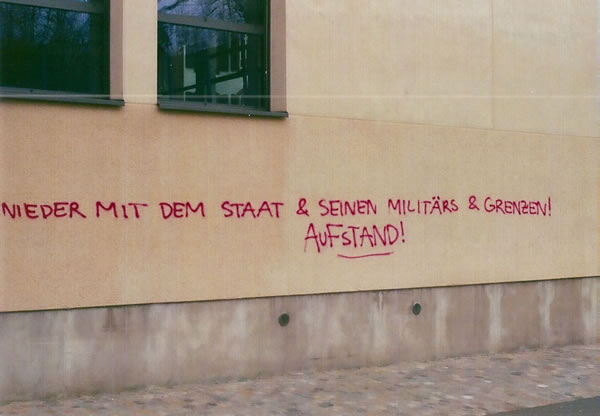 NIEDER MIT DEM STAAT & SEINEN MILITÄRS & GRENZEN!
AUFSTAND!